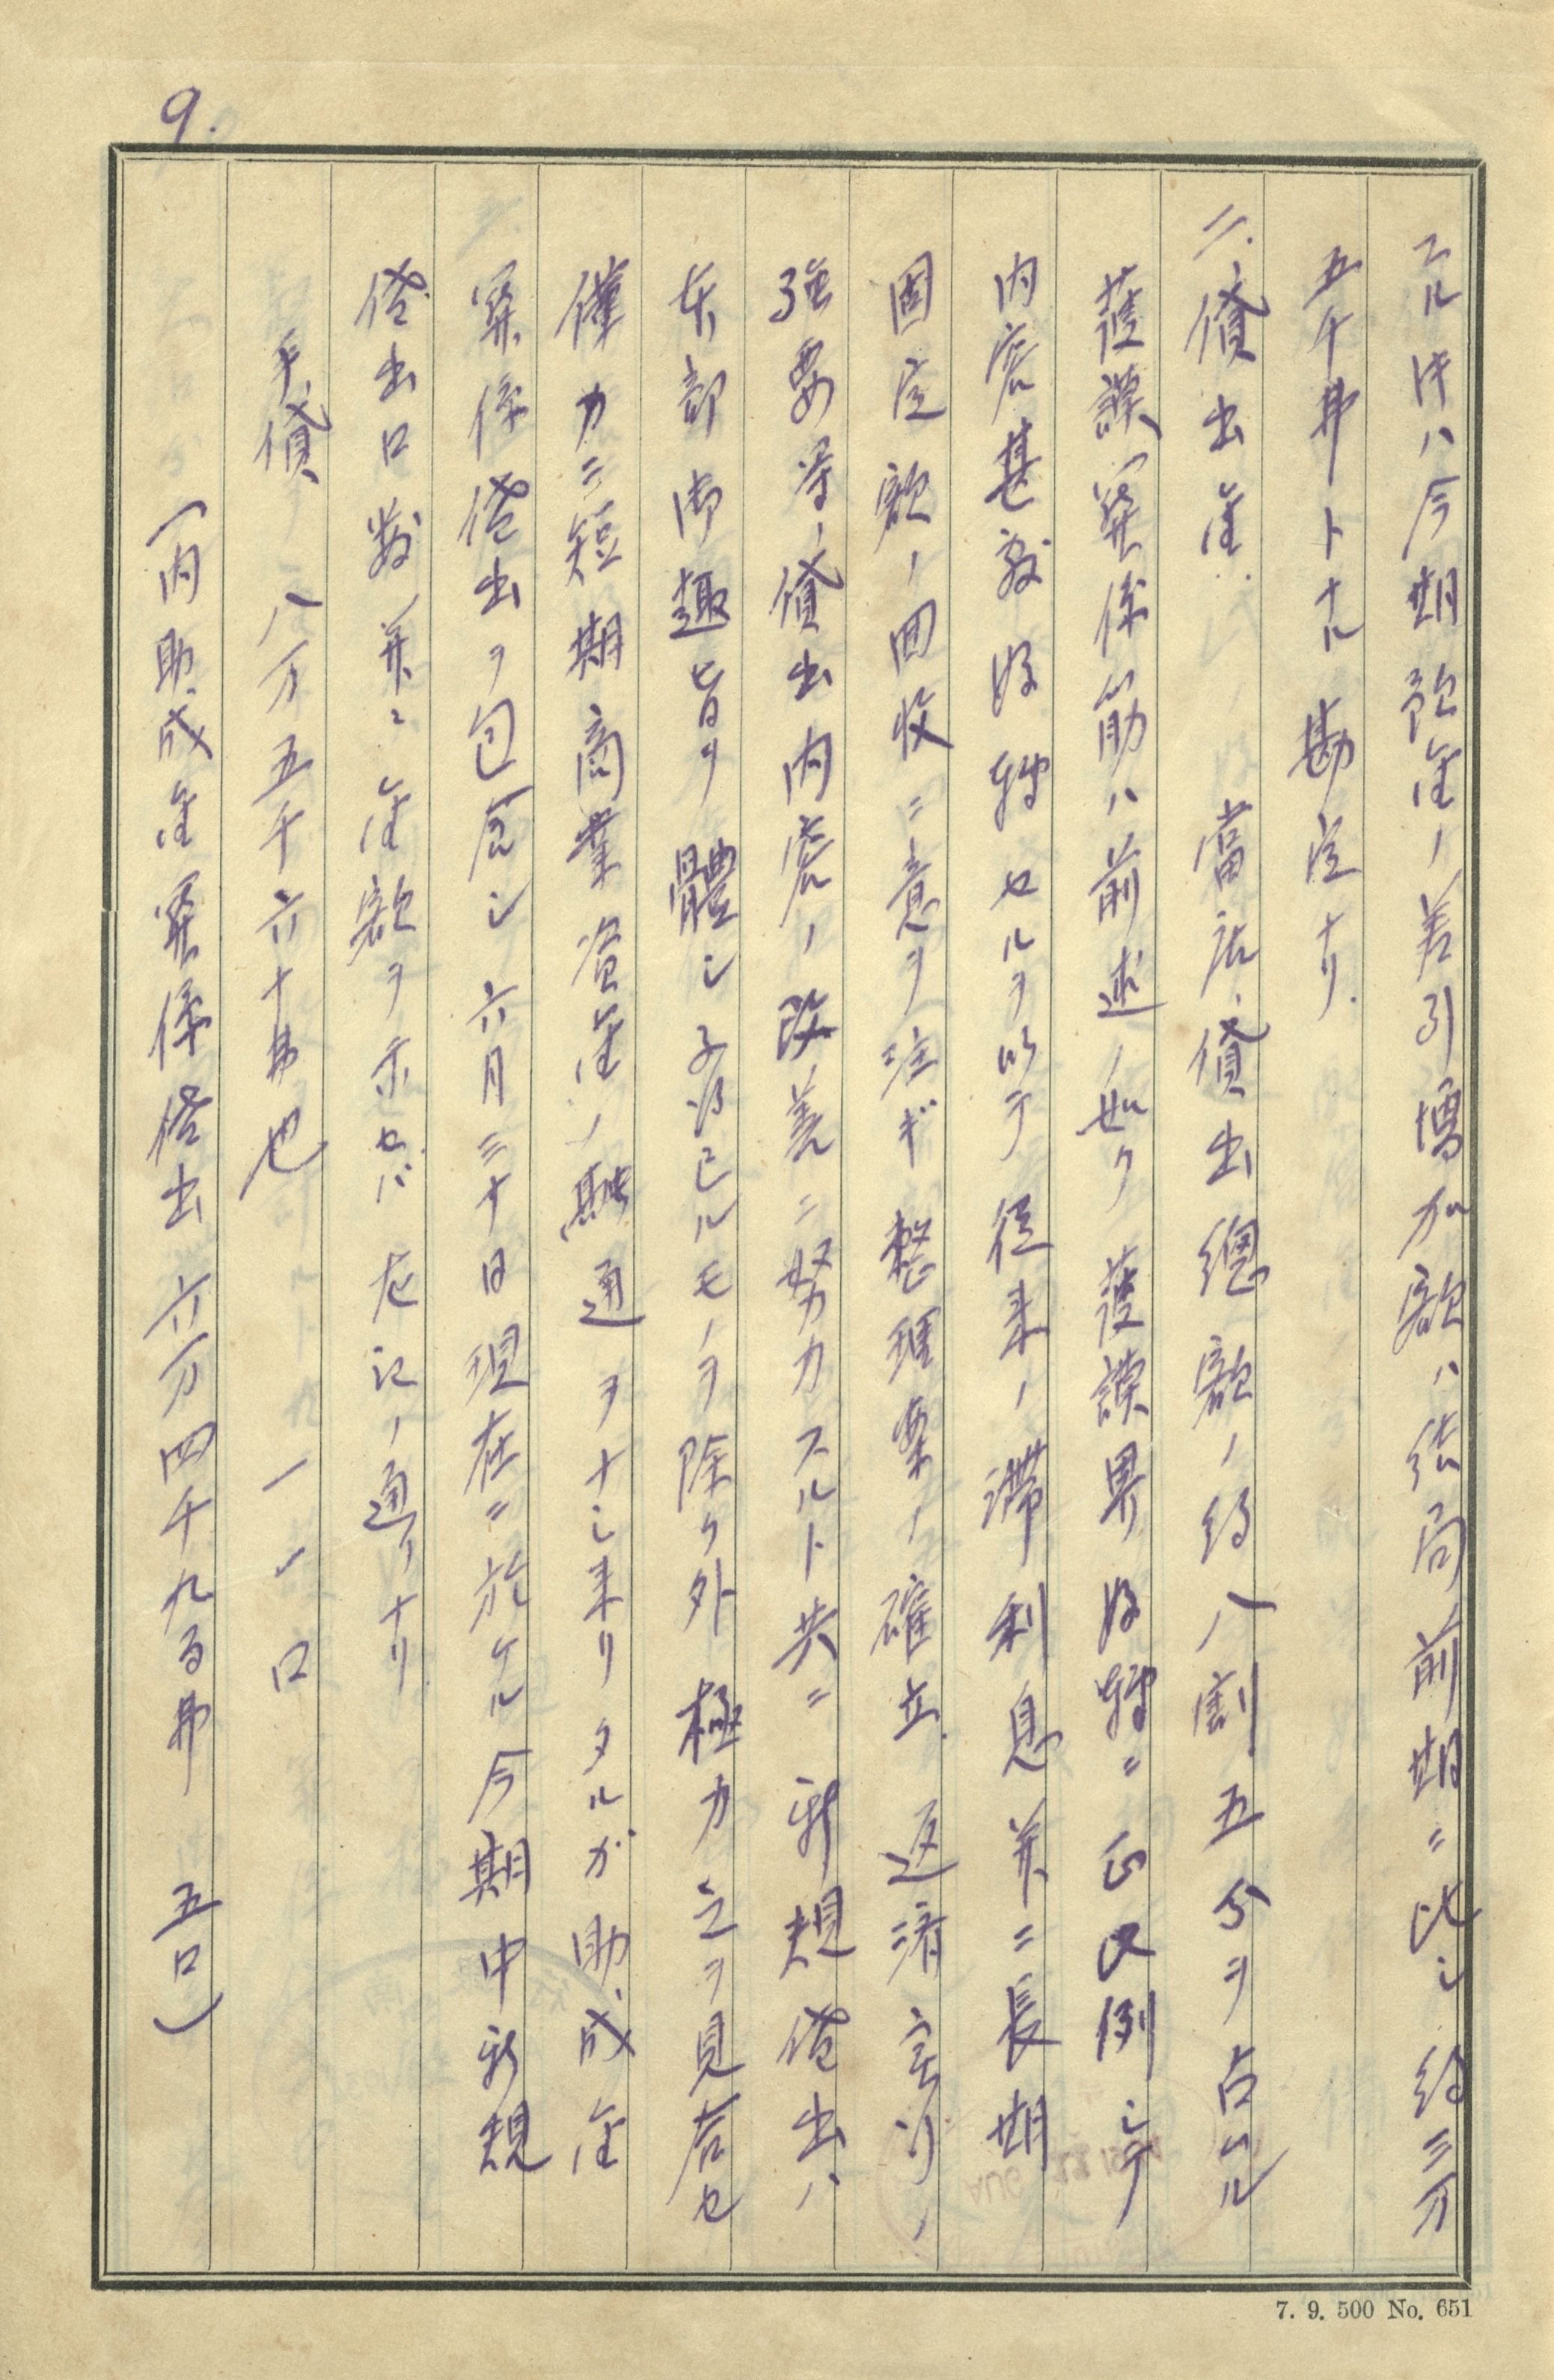 9.
スル時ハ今期預金ノ差引増加額ハ結局前期ニ比シ約三万
五千弗トナル勘定ナリ.
二.貸出金. 當店貸出總額ノ約八割五分ヲ占ムル
護謨関係筋ハ前述ノ如ク護謨界好轉ニ正比例シテ
内容甚敷好轉セルヲ以テ従来ノ滞利息并ニ長期
固定額ノ回収ニ意ヲ注ギ整理案ノ確立、返済宝リノ
強要等、貸出内容ノ改善ニ努力スルト共ニ新規貸出ハ
本部御趣旨ヲ體シ不得已ルモノヲ除ク外極力之ヲ見合セ
僅カニ短期商業資金ノ融通ヲナシ来リタルガ助成金
関係貸出ヲ包含シ六月三十日現在ニ於ケル今期中新規
貸出口数并ニ金額ヲ示セバ左記ノ通リナリ
手貸 八万五千六十弗也 一一口
(内助成金関係貸出 六万四千九百弗 五口)
7. 9. 500 No. 651